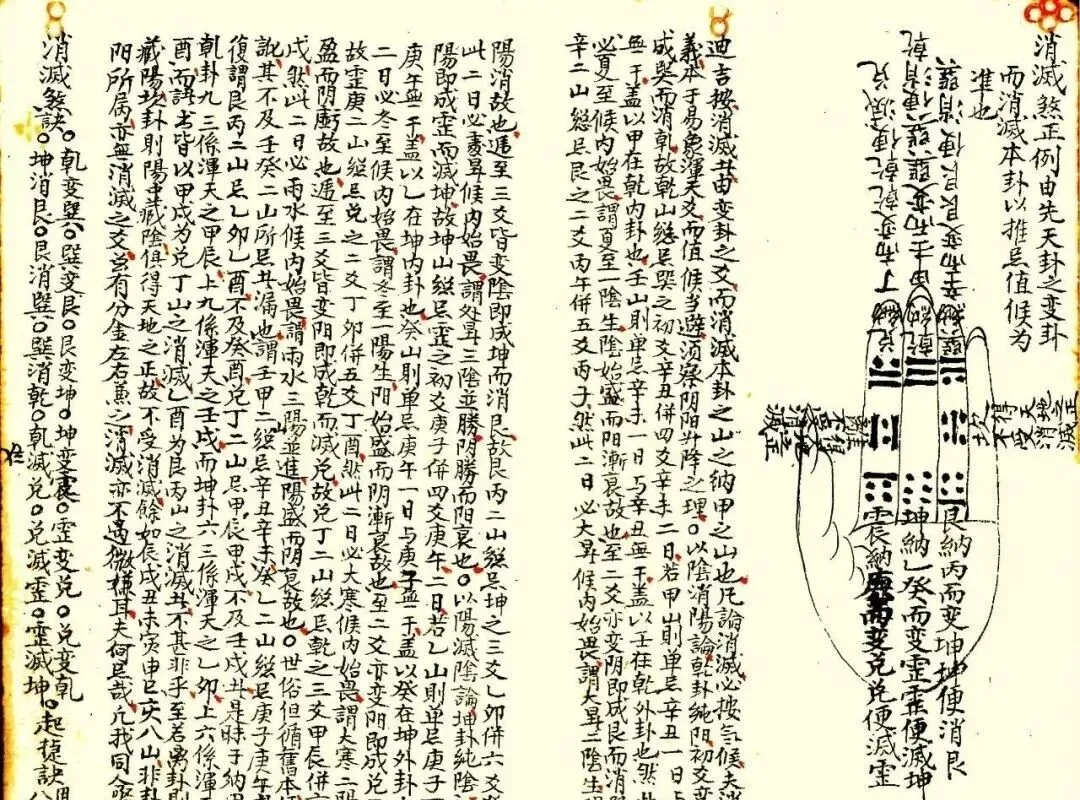 消滅煞正例由先天卦之变卦
而消滅本卦以推忌值候为
準也
兌納丁而变乾乾便滅兌
乾納甲壬而变巽巽便消乾
巽納辛而变艮艮便消巽
坎得天地之正不受消滅
艮納丙而变坤坤便消艮
坤納乙癸而变䨓䨓便滅坤
震納庚而变兌兌便滅䨓
迪吉按消滅卦由变卦之爻而消滅本卦之山之納甲之山也凡論消滅必按气候夫消
義本于易象渾天爻而值候当避须察阴阳升降之理○以陰消陽論乾卦純阳初爻变
成巽而消乾故乾山緫忌巽之初爻辛丑併四爻辛未二日若甲山則单忌辛丑一日与
無干盖以甲在乾内卦也壬山則单忌辛未一日与辛丑無干盖以壬在乾外卦也然此
必夏至候内始畏謂夏至一陰生陰始盛而阳漸衰故也至二爻亦变阴即成艮而消
辛二山緫忌艮之二爻丙午併五爻丙子然此二日必大暑候内始畏謂大暑二陰生
陽消故也递至三爻皆变陰即成坤而消艮故艮丙二山緫忌坤之三爻乙卯併六爻
此二日必處暑候内始畏謂处暑三陰並勝阴勝而阳衰也○以陽滅陰論坤卦純陰
陽即成䨓而滅坤故坤山緫忌䨓之初爻庚子併四爻庚午二日若乙山則单忌庚子
庚午無干盖以乙在坤内卦也癸山則单忌庚午一日与庚子無干盖以癸在坤外卦
二日必冬至候内始畏謂冬至一陽生阳始盛而阴漸衰故也至二爻亦变阳即成兌
故䨓庚二山緫忌兌之二爻丁卯併五爻丁酉然此二日必大寒候内始畏謂大寒二陽
盈而阴虧故也递至三爻皆变阳即成乾而滅兌故兌丁二山緫忌乾之三爻甲辰併六
戌然此二日必雨水候内始畏謂雨水三陽並進陽盛而阴衰故也○世俗但循舊本
訛其不及壬癸二山所忌其漏也謂壬甲二山緫忌辛丑辛未癸乙二山緫忌庚子庚午
復謂艮丙二山忌乙卯乙酉不及癸酉兌丁二山忌甲辰甲戌不及壬戌其是昧于納甲
乾卦九三係渾天之甲辰上九係渾天之壬戌而坤卦六三係渾天之乙卯上六係渾
酉而諸书皆以甲戌为兌丁山之消滅乙酉为艮丙山之消滅其不甚非乎至若离卦則
藏陽坎卦則陽中藏陰俱得天地之正故不受消滅餘如辰戌丑未寅申巳亥八山非卦
阴所属亦無消滅之爻若有分金左右兼之消滅亦不過微嫌耳夫何忌哉凡我同
乾变巽○巽变艮○艮变坤○坤变震○䨓变兌○兌变乾
消滅煞訣○坤消艮○艮消巽○巽消乾○乾滅兌○兌滅䨓○䨓滅坤○起捷訣